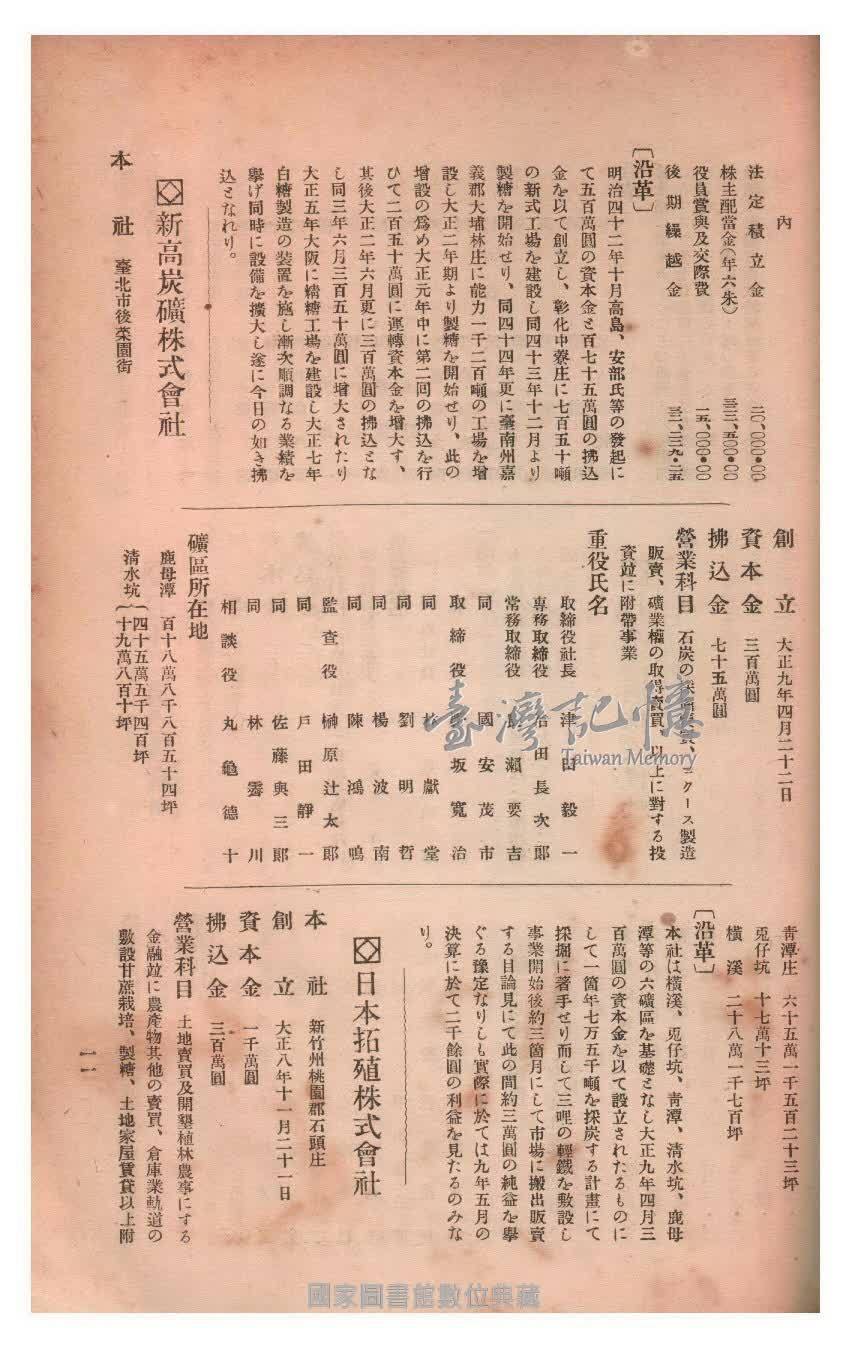 內
法定積立金 二〇、〇〇〇・〇〇
株主配當金(年六朱) 三三、五〇〇・〇〇
役員賞與及交際費 一五、〇〇〇・〇〇
後期繰越金 三二、三三九・二五
〔沿革〕
明治四十二年十月高島、安部氏等の發起に
て五百萬圓の資本金と百七十五萬圓の拂込
金を以て創立し、彰化中寮庄に七百五十噸
の新式工場を建設し同四十三年十二月より
製糖を開始せり、同四十四年更に臺南州嘉
義郡大埔林庄に能力一千二百噸の工場を增
設し大正二年期より製糖を開始せり、此の
增設の爲め大正元年中に第二回の拂込を行
ひて二百五十萬圓に運轉資本金を增大す、
其後大正二年六月更に三百萬圓の拂込とな
し同三年六月三百五十萬圓に增大されたり
大正五年大阪に精糖工場を建設し大正七年
白糖製造の裝置を施し漸次順調なる業績を
擧げ同時に設備を擴大し遂に今日の如き拂
込となれり。
新高炭礦株式會社
本社 臺北市後菜園街
創立 大正九年四月二十二日
資本金 三百萬圓
拂込金 七十五萬圓
營業科目 石炭の採掘賣買、コークース製造
販賣、礦業權の取得賣買、以上に對する投
資竝に附帶事業
重役氏名
取締役社長 津田毅一
專務取締役 治田長次郞
常務取締役 瀨要吉
同 國安茂市
取締役 坂寬治
同 獻堂
同 劉明哲
同 楊波南
同 陳鴻鳴
監查役 榊原辻太郞
同 戶田靜一
同 佐藤與三郞
同 林雲川
相談役 丸龜德十
礦區所在地
鹿母潭 百十八萬八千八百五十四坪
清水坑 四十五萬五千四百坪
十九萬八百十坪
青潭庄 六十五萬一千五百二十三坪
兎仔坑 十七萬十三坪
橫溪 二十八萬一千七百坪
〔沿革〕
本社は橫溪、兎仔坑、青潭、清水坑、鹿母
潭等の六礦區を基礎となし大正九年四月三
百萬圓の資本金を以て設立されたるものに
して一箇年七万五千噸を採炭する計畫にて
採掘に著手せり而して三哩の輕鐵を敷設し
事業開始後約三箇月にして市場に搬出販賣
する目論見にて此の間約三萬圓の純益を擧
ぐる豫定なりしも實際に於ては九年五月の
決算に於て二千餘圓の利益を見たるのみな
り。
日本拓殖株式會社
本社 新竹州桃園郡石頭庄
創立 大正八年十一月二十一日
資本金 一千萬圓
拂込金 三百萬圓
營業科目 土地賣買及開墾植林農事にする
金融竝に農產物其他の賣買、倉庫業軌道の
敷設甘蔗栽培、製糖、土地家屋賃貸以上附
一一
臺灣記憶
Taiwan Memory
國家圖書館數位典藏